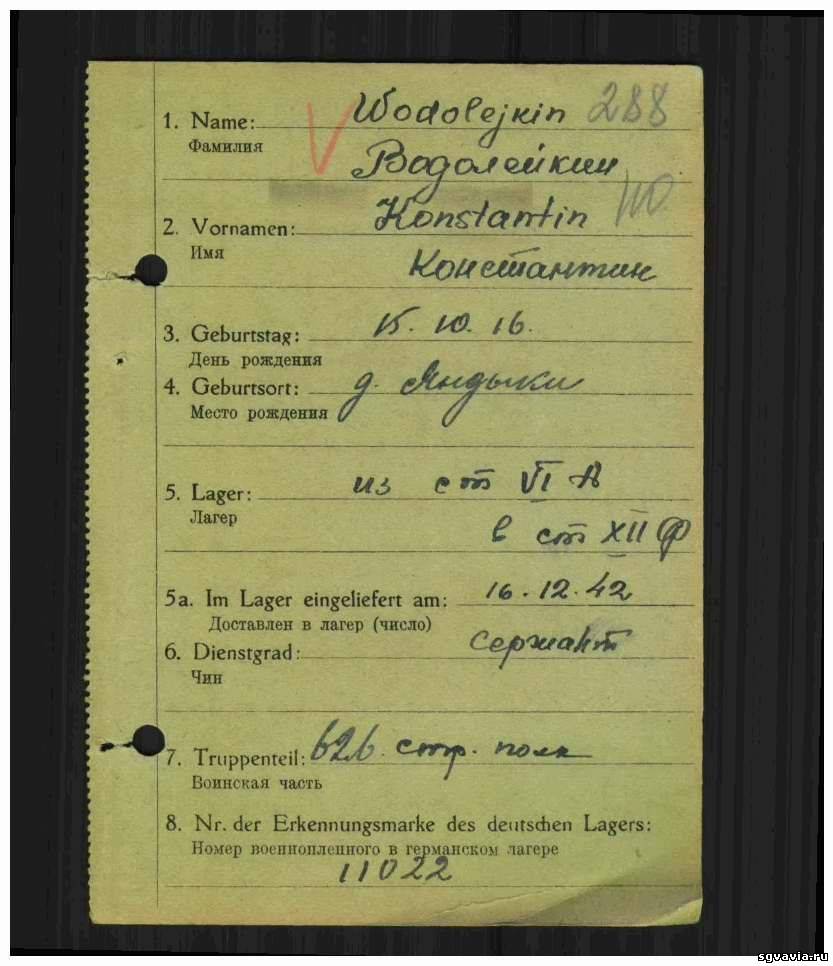 1. Name: Wodolejkin 288
Фамилия
Водолейкин
2. Vornamen: Konstantin
Имя
Константин
3. Geburtstag: 15. 10. 16.
День рождения
4. Geburtsort: д. Яндыки
Место рождения
5. Lager: из ст VI A
Лагер
в ст XII Ф
5a. Im Lager eingeliefert am: 16. 12. 42
Доставлен в лагер (число)
6. Dienstgrad: сержант
Чин
7. Truppenteil: 626. стр. полк
Воинская часть
8. Nr. der Erkennungsmarke des deutschen Lagers:
Номер военнопленного в германском лагере
11022
sgvavia.ru